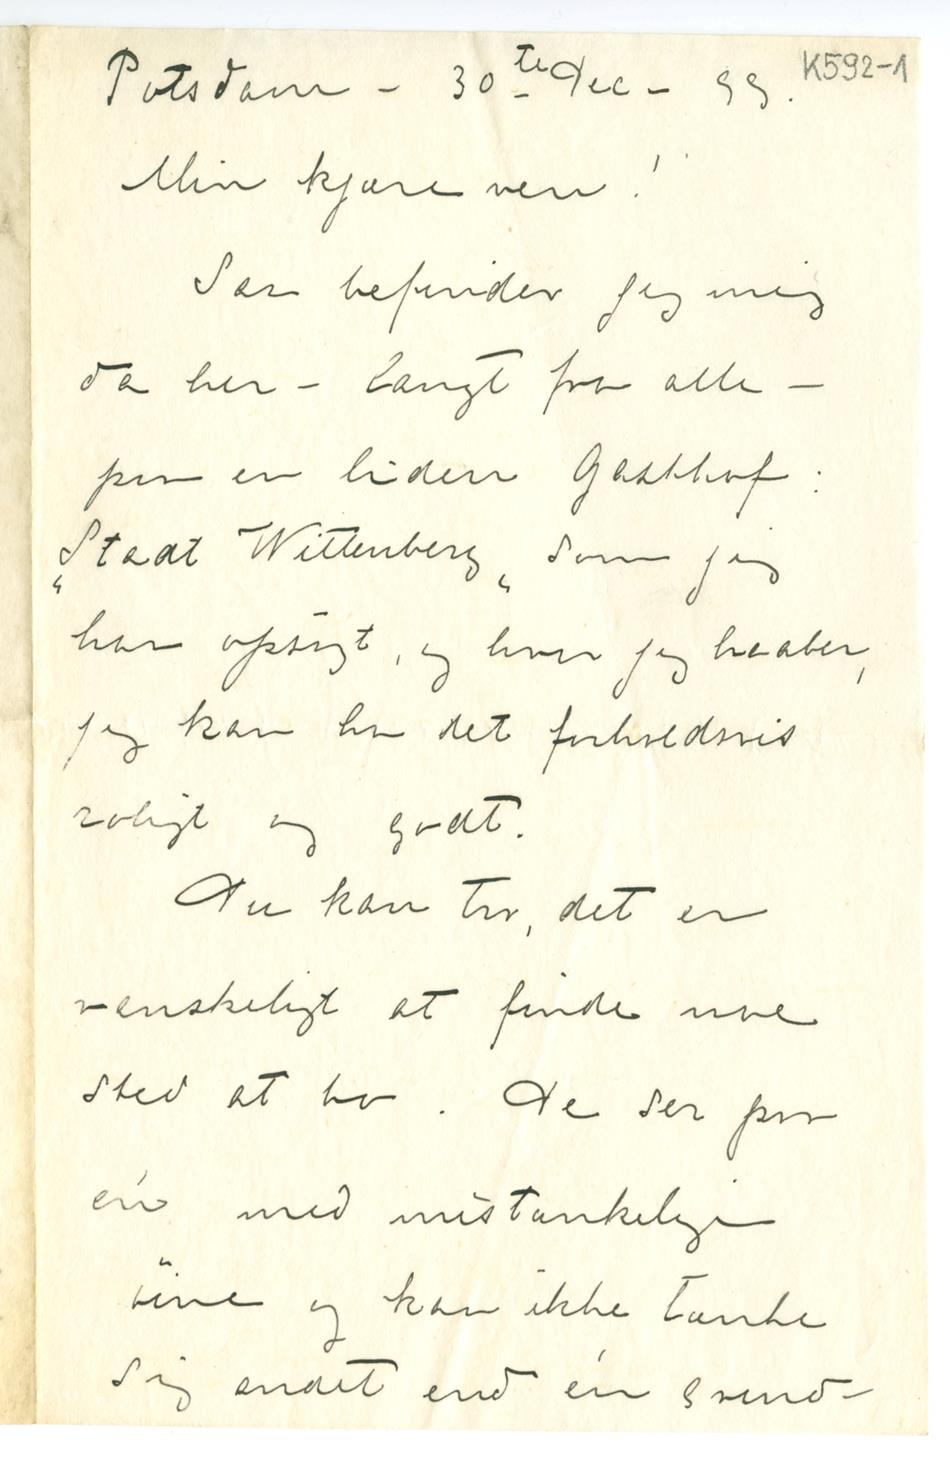 K592-1
Potsdam – 30te Dec – 99.
Min kjære ven!
Saa befinder jeg mig
da her – langt fra alle –
paa en liden Gasthof:
„Stadt Wittenberg„ som jeg
har opsøgt, og hvor jeg haaber,
jeg kan ha det forholdsvis
roligt og godt.
Du kan tro, det er
vanskeligt at finde noe
sted at bo. De ser paa
én med mistænkelige
öine og kan ikke tænke
sig andet end én grund –